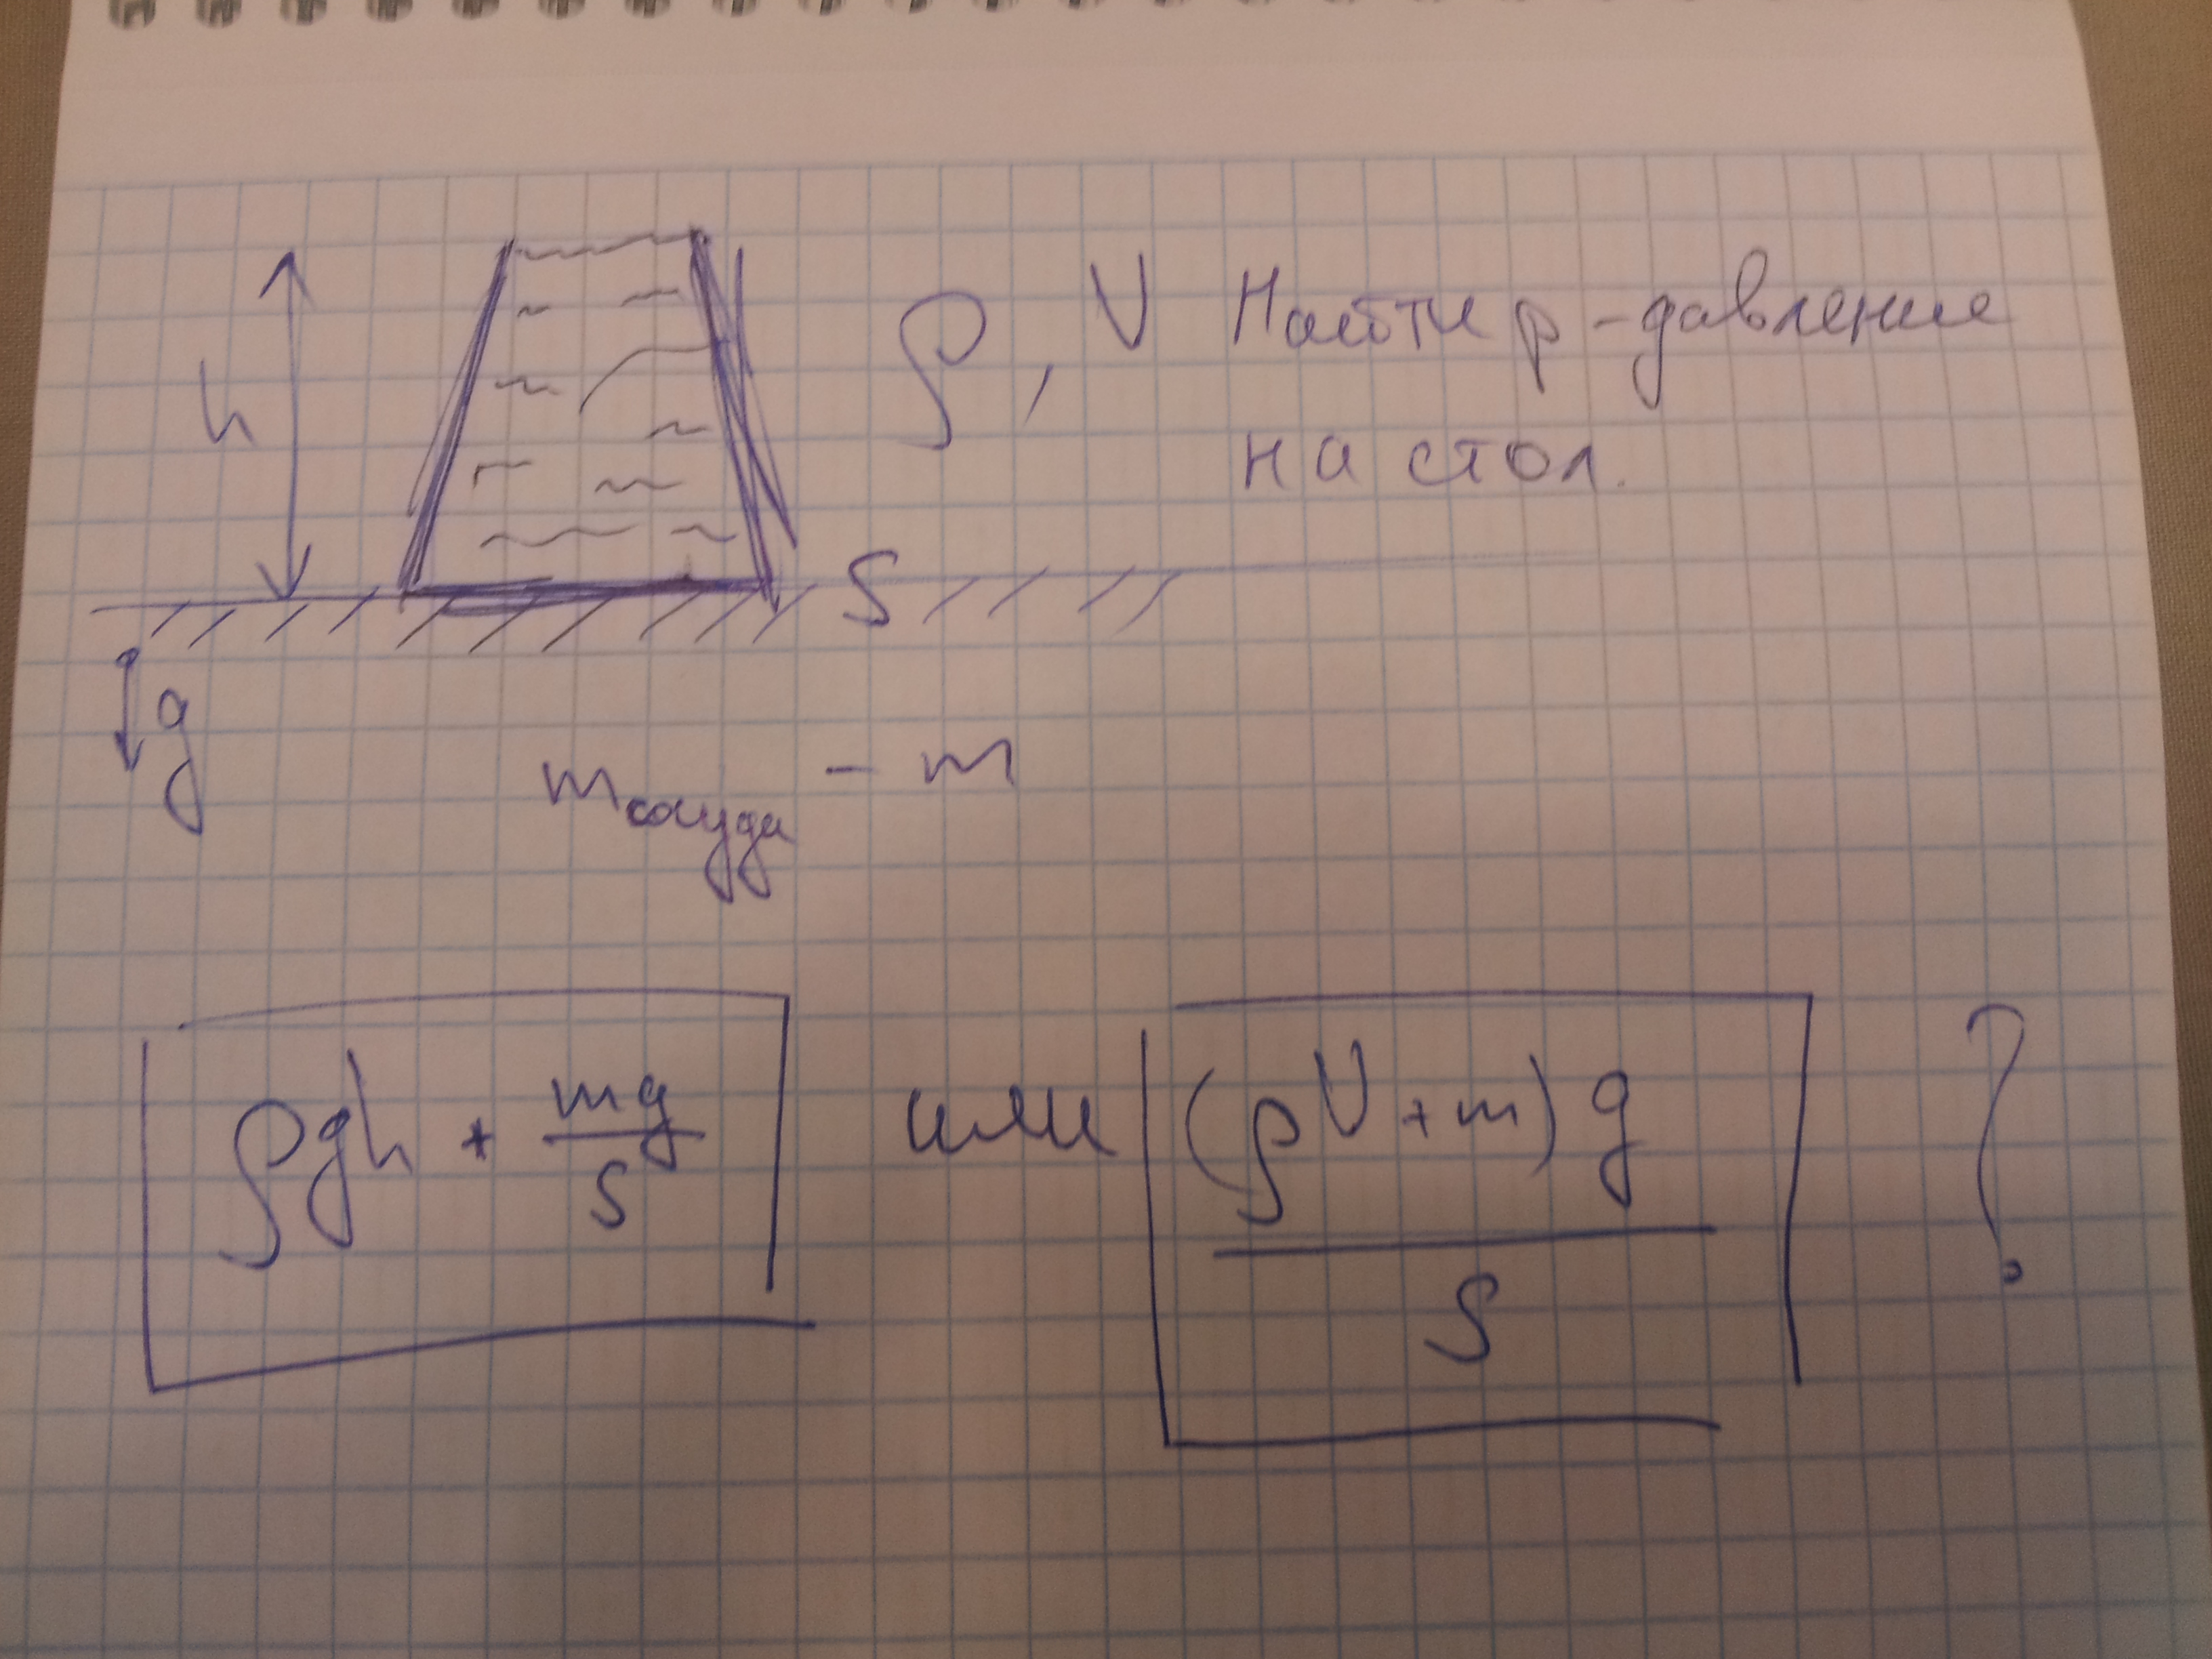 h
ρ, V Найти p - давление
на стол.
S
g
m сосуда - m
ρgh + mg/S или (ρV + m)g/S ?